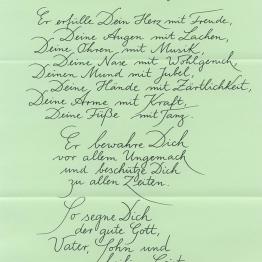 Er erfülle Dein Herz mit Freude,
Deine Augen mit Lachen,
Deine Ohren mit Musik,
Deine Nase mit Wohlgeruch,
Deinen Mund mit Jubel,
Deine Hände mit Zärtlichkeit,
Deine Arme mit Kraft,
Deine Füße mit Tanz.
Er bewahre Dich
vor allem Ungemach
und beschütze Dich
zu allen Zeiten.
So segne Dich
der gute Gott,
Vater, Sohn und